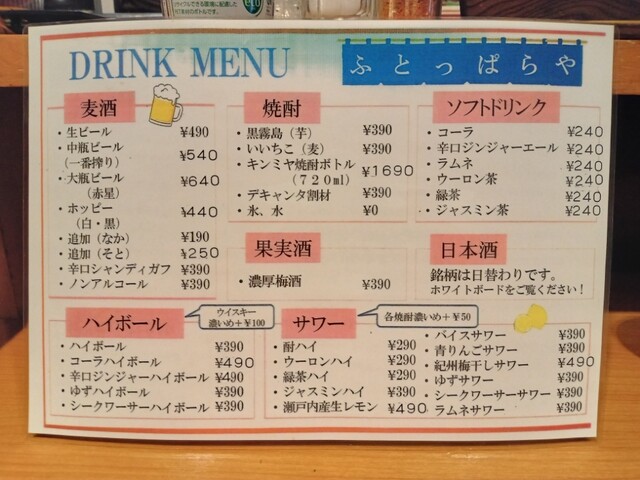 DRINK MENU
ふとっぱらや
麦酒
・生ビール ¥490
・中瓶ビール ¥540
（一番搾り）
・大瓶ビール ¥640
（赤星）
・ホッピー ¥440
（白・黒）
・追加（なか） ¥190
・追加（そと） ¥250
・辛口シャンディガフ ¥390
・ノンアルコール ¥390
焼酎
・黒霧島（芋） ¥390
・いいちこ（麦） ¥390
・キンミヤ焼酎ボトル ¥1690
（720ml）
・デキャンタ割材 ¥390
・氷、水 ¥0
ソフトドリンク
・コーラ ¥240
・辛口ジンジャーエール ¥240
・ラムネ ¥240
・ウーロン茶 ¥240
・緑茶 ¥240
・ジャスミン茶 ¥240
果実酒
・濃厚梅酒 ¥390
日本酒
銘柄は日替わりです。
ホワイトボードをご覧ください！
ハイボール
ウイスキー
濃いめ+¥100
・ハイボール ¥390
・コーラハイボール ¥490
・辛口ジンジャーハイボール ¥490
・ゆずハイボール ¥390
・シークワーサーハイボール ¥390
サワー
各焼酎濃いめ+¥50
・酎ハイ ¥290
・ウーロンハイ ¥390
・緑茶ハイ ¥290
・ジャスミンハイ ¥390
・瀬戸内産生レモン ¥490
・バイスサワー ¥390
・青りんごサワー ¥390
・紀州梅干しサワー ¥490
・ゆずサワー ¥390
・シークワーサーサワー ¥390
・ラムネサワー ¥390